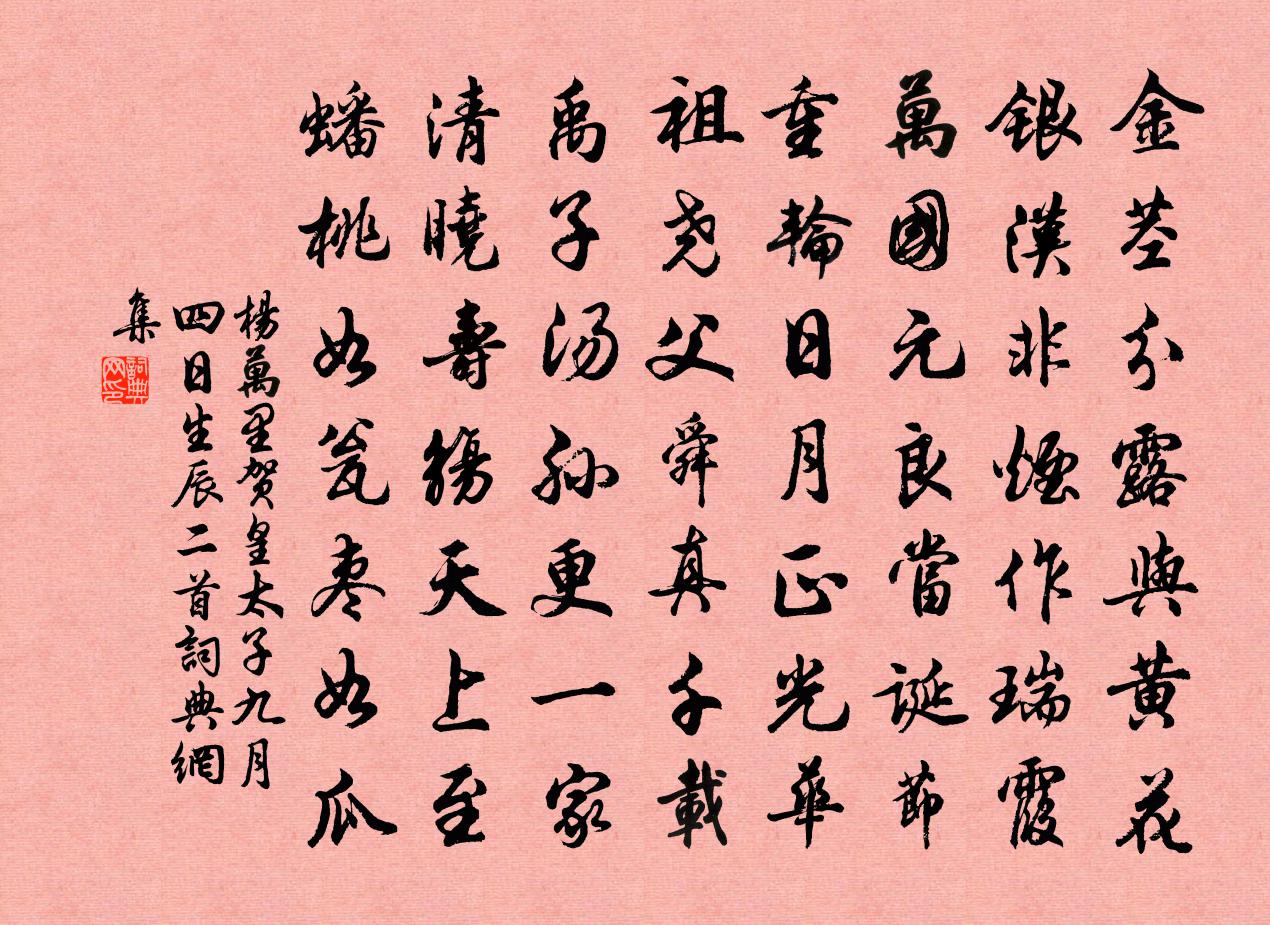 金莖分露與黃花
銀漢非煙作瑞霞
萬國元良當誕節
重輪日月正光華
祖堯父舜真千載
禹子湯孫更一家
清曉壽觴天上至
蟠桃如瓮棗如瓜
楊萬里賀皇太子九月
四日生辰二首詞典網
集
詞典
网印